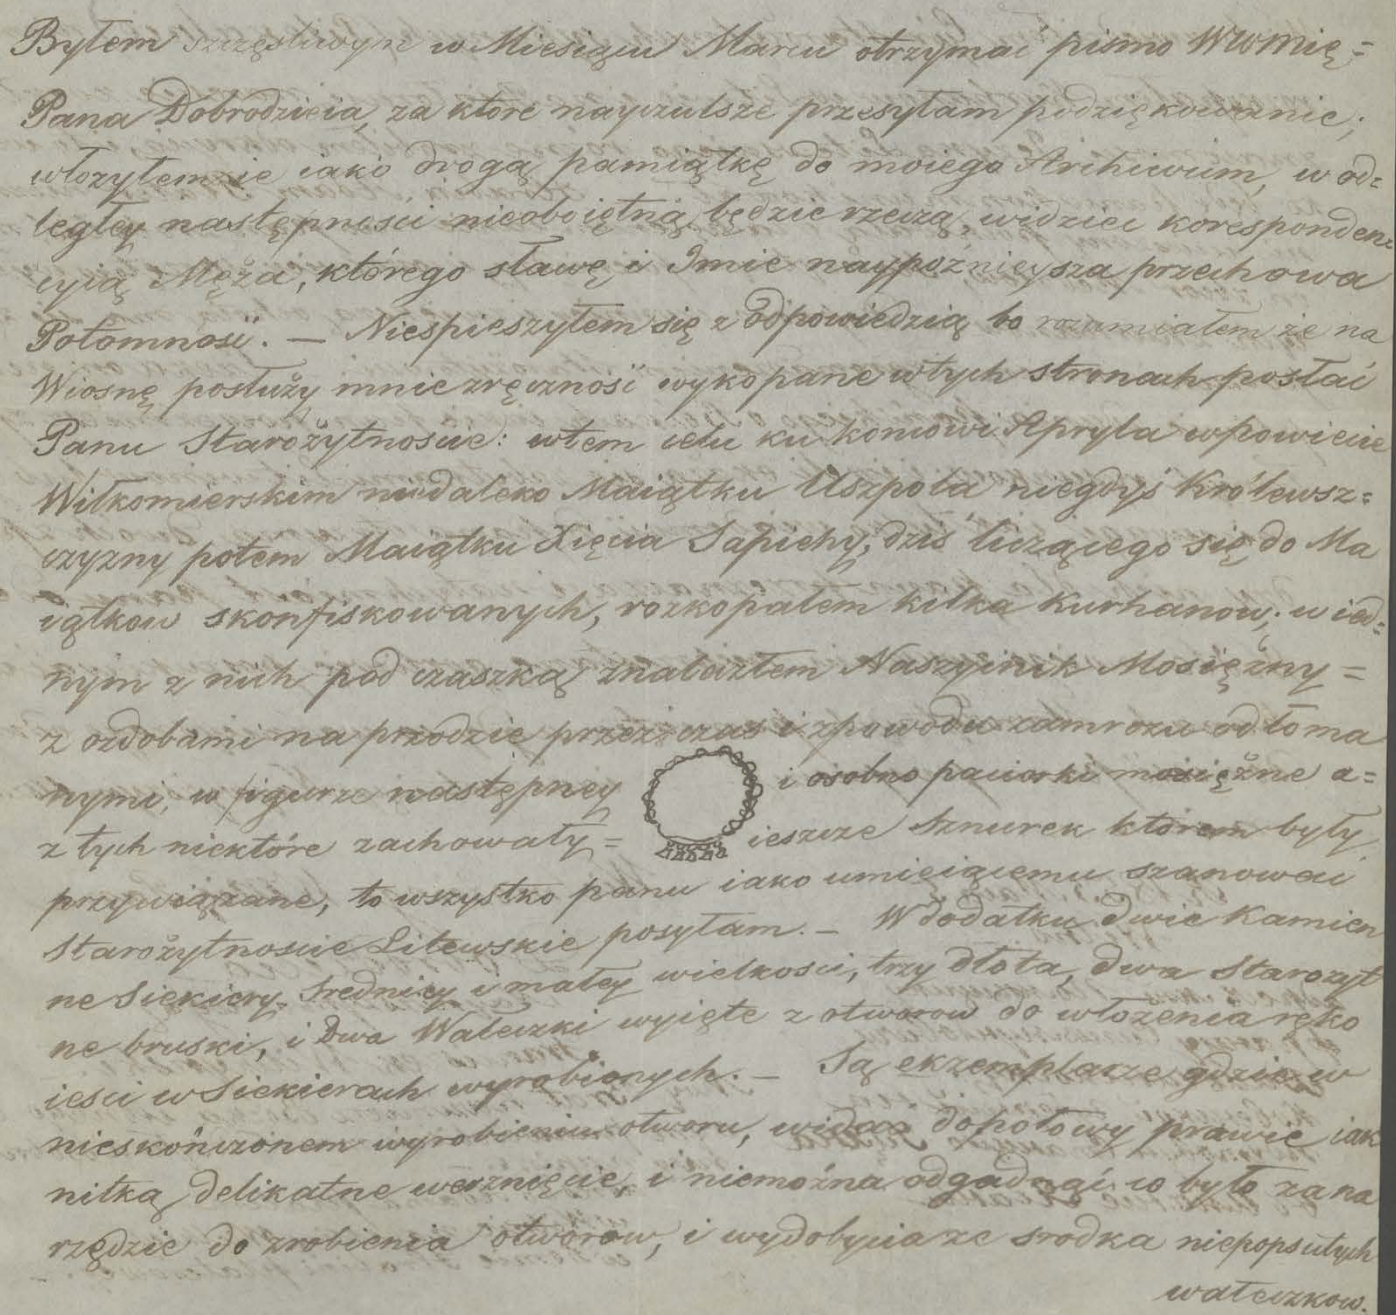 Byłem szczęśliwym w Miesiącu Marcu otrzymać pismo WWMię=
Pana Dobrodzieia, za ktore nayczulsze przesyłam podziękowanie;
włozyłem ie iako drogą pamiątkę do moiego Archiwum, w od=
ległey następnosci nieobciętną będzie rzeczą, widzieć koresponden=
cyią Męża, którego sławę i Imie naypoźnieysza przechowa
Potomność. — Niespieszyłem się z odpowiedzią bo rozumiałem że na
Wiosnę posłuży mnie zręczność wykopane w tych stronach posłać
Panu Starożytnoscie: w tem celu ku koncowi Apryla w powiecie
Wiłkomierskim niedaleko Maiątku Uszpola niegdyś Królewsz=
czyzny potem Maiątku Xięcia Sapiehy, dziś liczącego się do Ma
iątkow skonfiskowanych, rozkopałem kilka Kurhanow; w ied=
nym z nich pod czaszką znalazłem Naszyinik Mosiężny =
z ozdobami na przodzie przez czas i z powodu zamrozu odłoma
nymi, w figurze następney i osobno paciorki mosiężne a=
z tych niektóre zachowały= ieszcze Sznurek ktorem były
przywiązane, to wszystko panu iako umieiącemu szanować
Starożytnoscie Litewskie posyłam. — W dodatku dwie Kamien
ne Siekiery średniey i małey wielkosci, trzy dłota, dwa Starożyt
ne bruski, i Dwa Waleczki wyięte z otworow do włozenia ręko
iesci w Siekierach wyrobionych. — Są ekzemplarze gdzie w
nieskończonem wyrobieniu otworu, widać dopołowy prawie iak
nitką delikatne werznięcie, i niemożna odgadnąć co było za na
rzędzie do zrobienia otworow, i wydobycia ze srodka niepopsutych
wałeczkow.